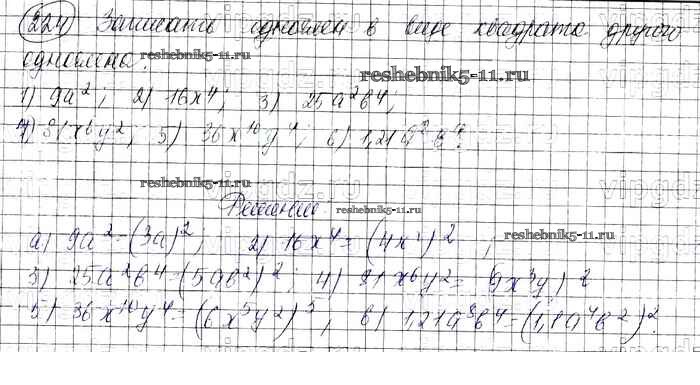 224 Записать одночлен в виде квадрата другого
одночлена:
reshebnik5-11.ru
reshebnik5-11.ru
1) 9a²; 2) 16x⁴; 3) 25a²b⁴;
4) 81x⁶y²; 5) 36x¹⁰y⁴; 6) 1,21a⁸b⁴.
reshebnik5-11.ru
vipgdz.ru
Решение
reshebnik5-11.ru
reshebnik5-11.ru
а) 9a² = (3a)²; 2) 16x⁴ = (4x²)²;
3) 25a²b⁴ = (5ab²)²; 4) 81x⁶y² = (9x³y)²
5) 36x¹⁰y⁴ = (6x⁵y²)², 6) 1,21a⁸b⁴ = (1,1a⁴b²)².